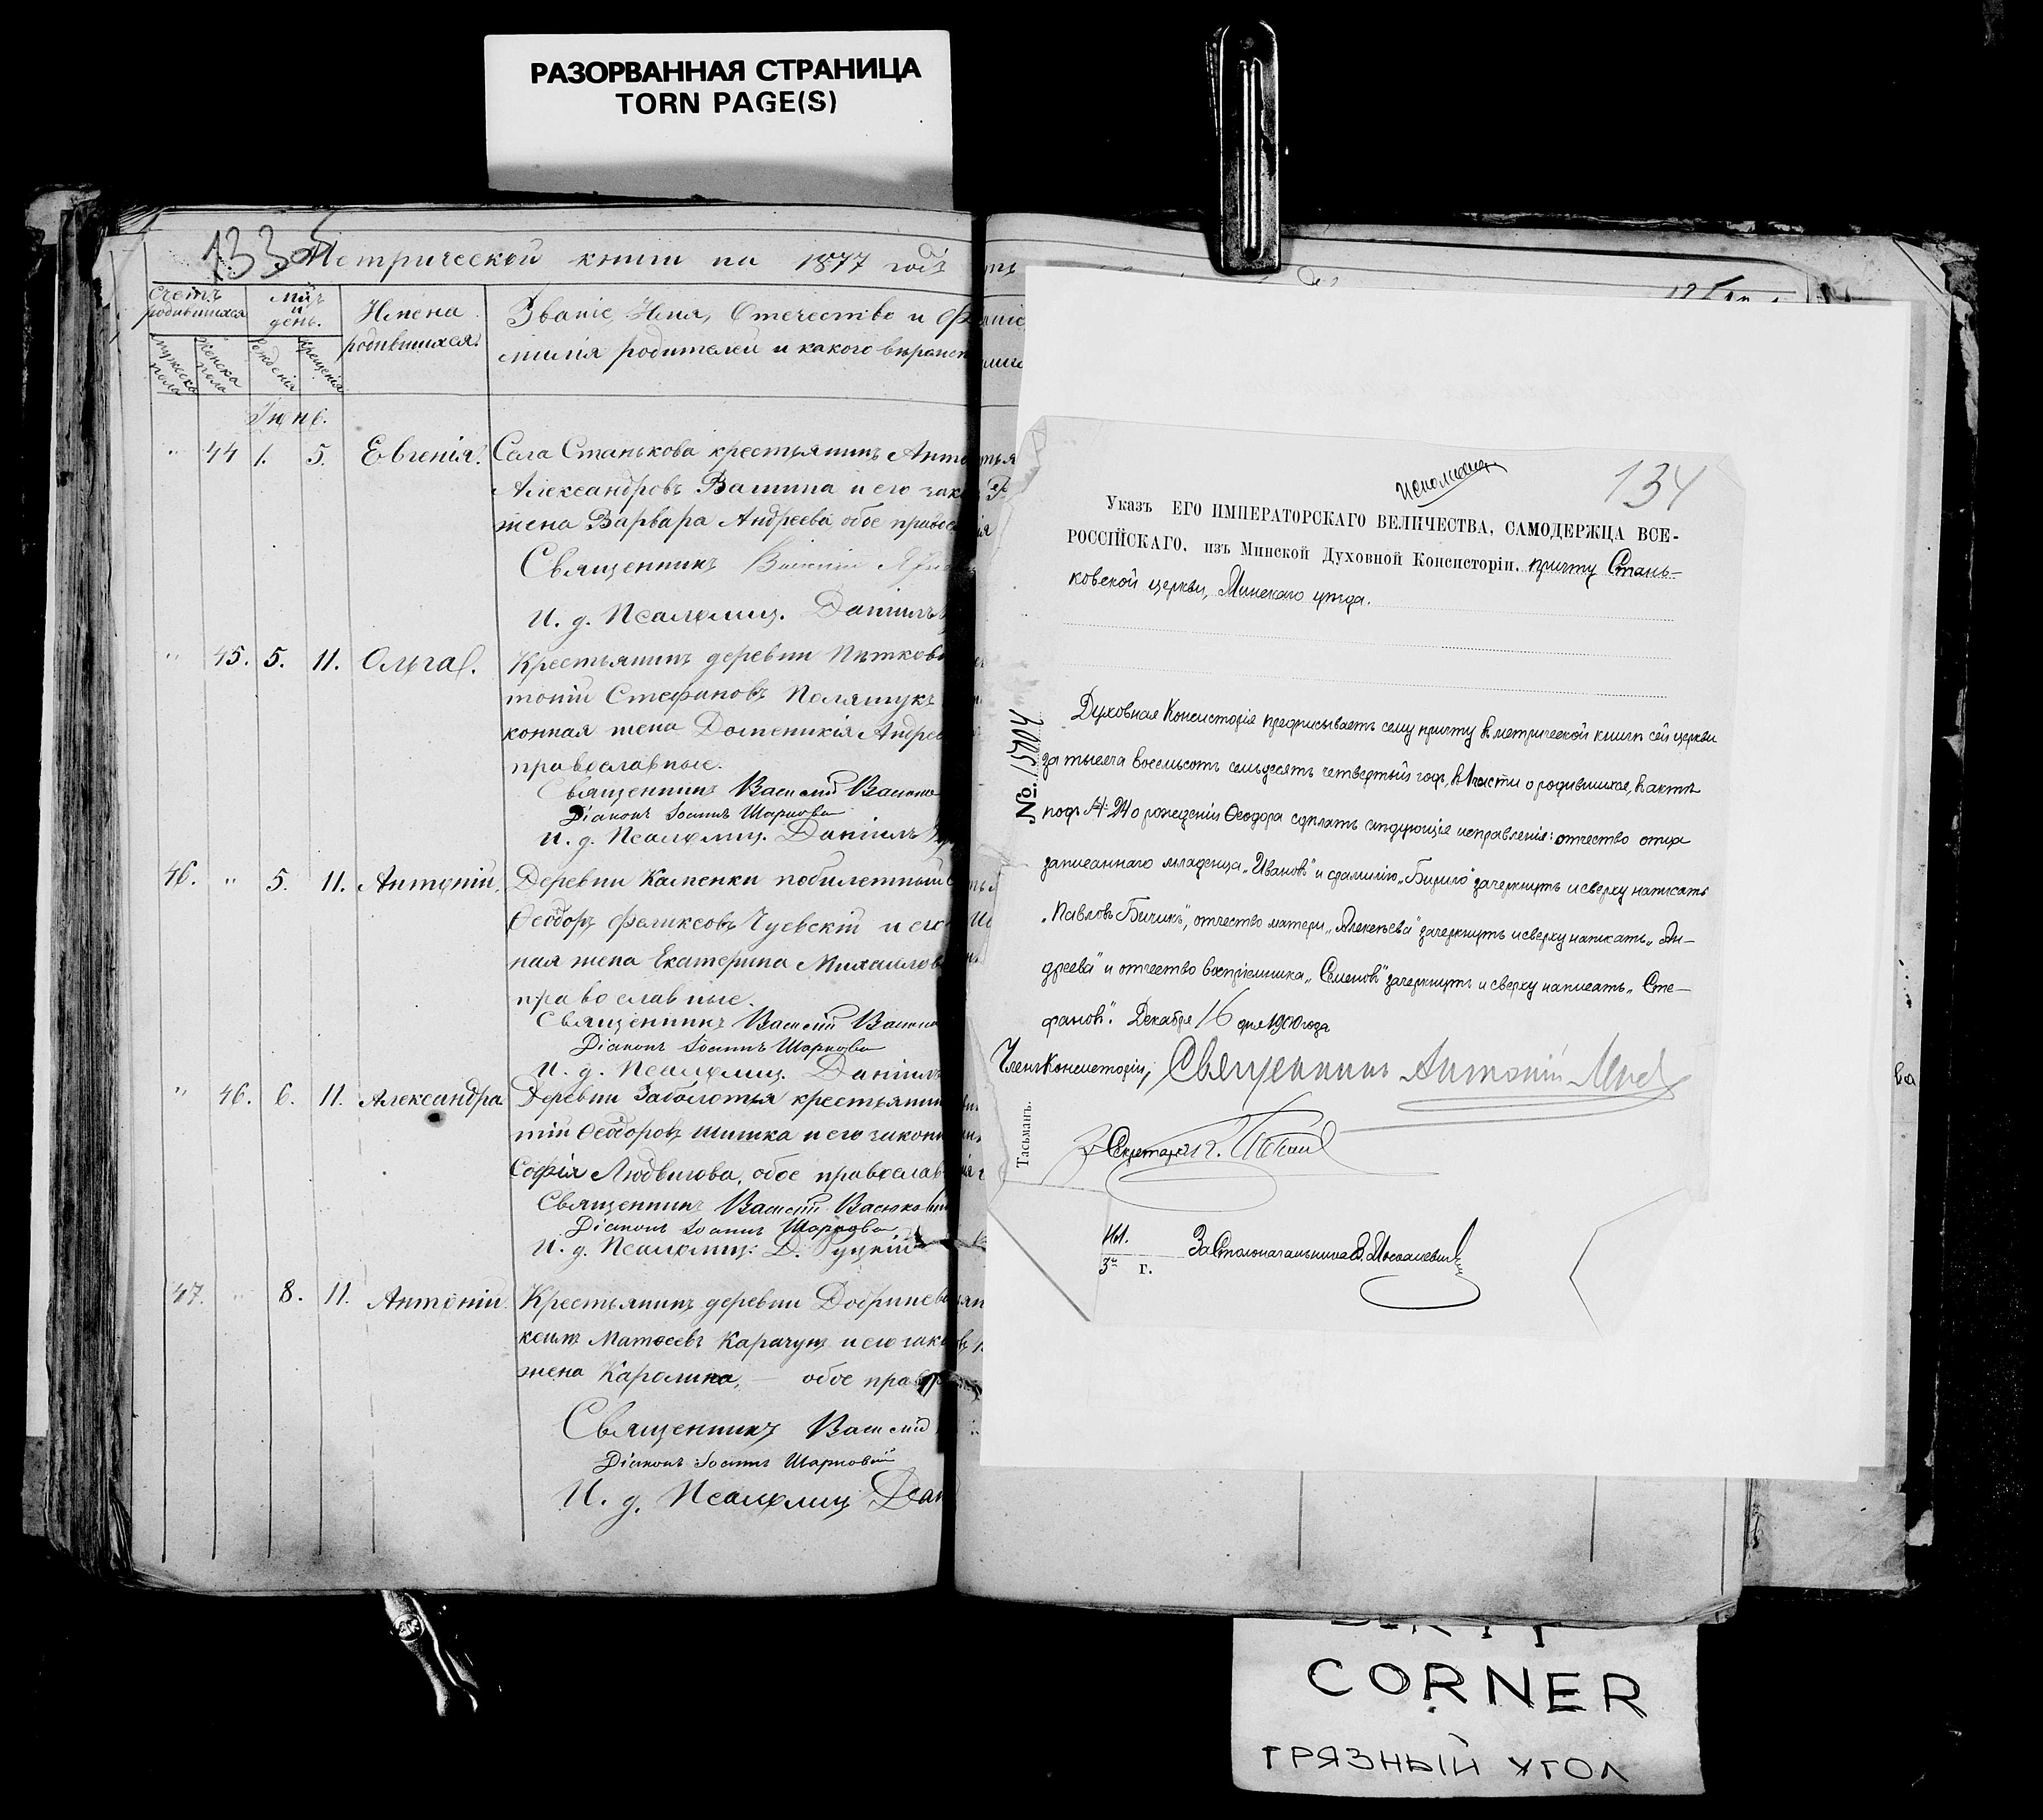 РАЗОРВАННАЯ СТРАНИЦА
TORN PAGE(S)
133
Метрической книги на 1877 годъ
счетъ родившихся
мужеска пола
женска пола
мцъ и день.
рожденія
крещенія
Имена
родившихся.
Званіе, Имя, Отечество и Фа
милія родителей и какого вѣроисп
Іюнь.
" 44 1. 5. Евгенія. Села Станькова крестьянинъ Анто
Александровъ Вашина и его зак
жена Варвара Андреева, обое правос
Священникъ Василій
И. д. Псаломщ. Даніилъ
" 45. 5. 11. Ольга. Крестьянинъ деревни
тоній Стефановъ Полящукъ
конная жена Доменикія Андрев
православные.
Священникъ Василій
Діаконъ Іоаннъ
И. д. Псаломщ. Даніилъ
46. " 5. 11. Антоній. Деревни Каменки побилетный
Ѳеодоръ Феликсовъ Чуевскій и его
ная жена Екатерина Михайлов
православные.
Священникъ Василій
Діаконъ Іоаннъ
И. д. Псаломщ. Даніилъ
" 46. 6. 11. Александра. Деревни Заболотья крестьянин
тій Ѳеодоровъ Шишка и его законн
Софія Людвигова, обое православ
Священникъ Василій
Діаконъ Іоаннъ
И. д. Псаломщ: Д. Руцкій
47. " 8. 11. Антоній. Крестьянинъ деревни Добринев
ксимъ Матѳеевъ Карачунъ и его зак
жена Каролина, — обое прав
Священникъ Василій
Діаконъ Іоаннъ
И. д. Псаломщ Дан
исполненъ
134
Указъ ЕГО ИМПЕРАТОРСКАГО ВЕЛИЧЕСТВА, САМОДЕРЖЦА ВСЕ-
РОССІЙСКАГО, изъ Минской Духовной Консисторіи, причту Стань-
ковской церкви, Минскаго уѣзда.
№
Духовная Консисторія предписываетъ сему причту въ метрической книгѣ сей церкви
за тысяча восемьсотъ семьдесятъ четвертый годъ, въ 1 части о родившихся, въ актѣ
подъ № 24 о рожденіи Ѳеодора сдѣлать слѣдующія исправленія: отчество отца
записаннаго младенца „Ивановъ" и фамилію „Бирило" зачеркнуть и сверху написать
„Павловъ Бичикъ", отчество матери „Алексѣева" зачеркнуть и сверху написать „Ан-
дреева" и отчество воспріемника „Семеновъ" зачеркнуть и сверху написать „Сте-
фановъ". Декабря 16 дня 1900 года
Членъ Консисторіи, Священникъ Антоній
Тасьманъ.
Секретарь
За Столоначальника
3 г.
CORNER
ГРЯЗНЫЙ УГОЛ